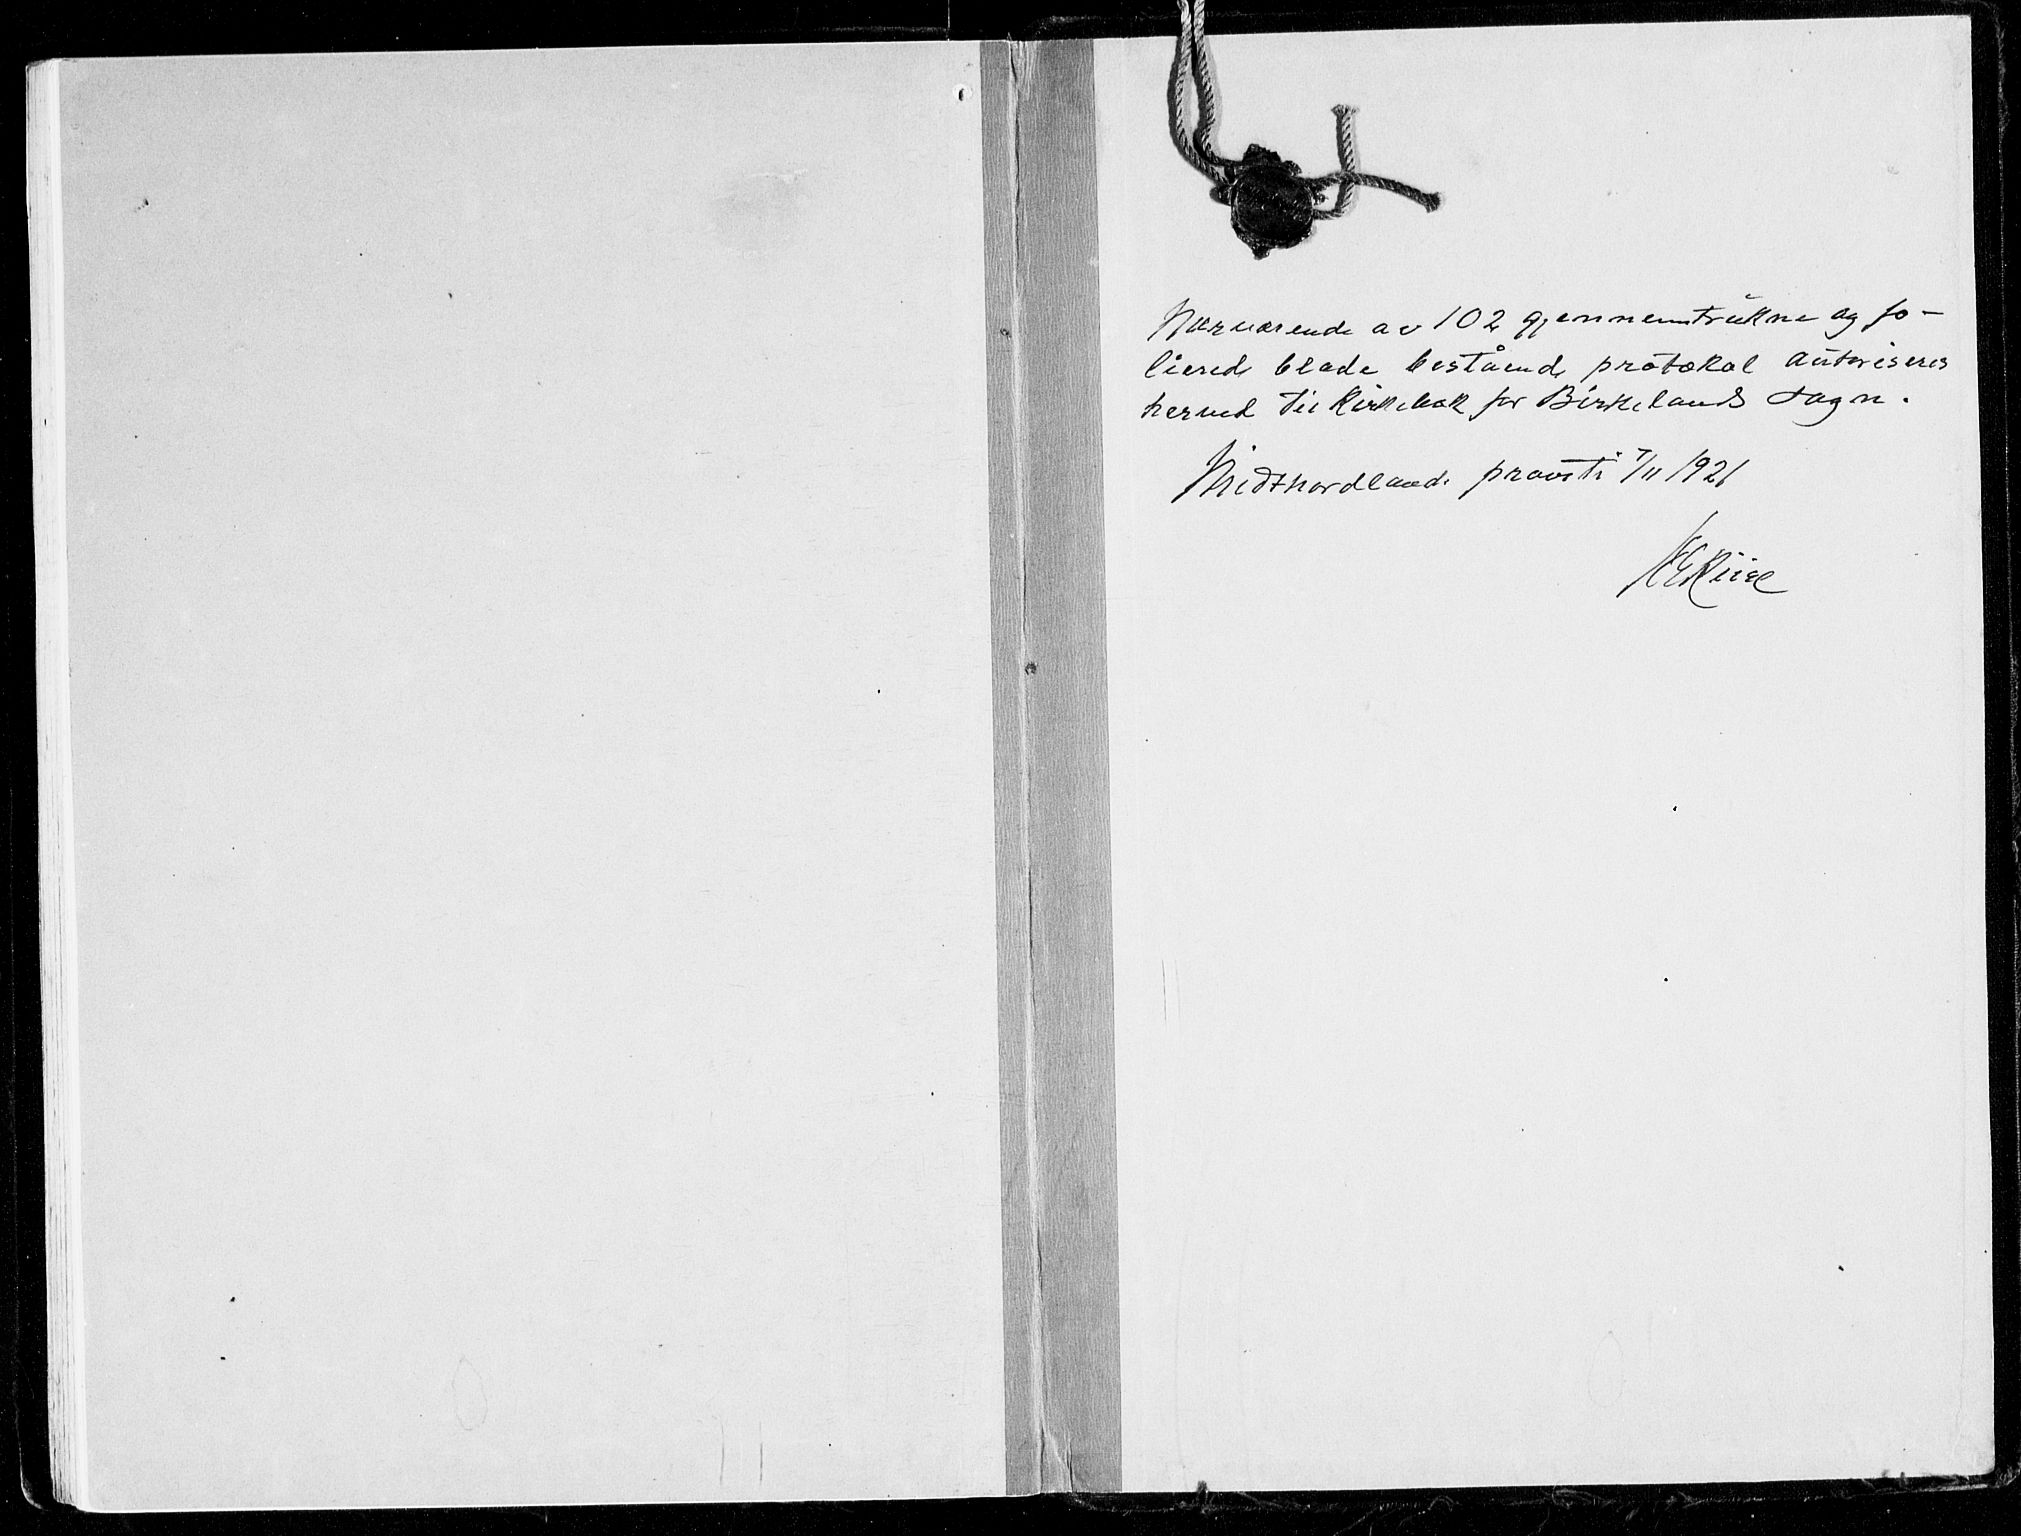 Nærværende av 102 gjennemtrukne og fo-
lierede blade bestående protokol autoriseres
herved til kirkebok for Birkelands sogn.
Midthordlands provsti 7/11 1921